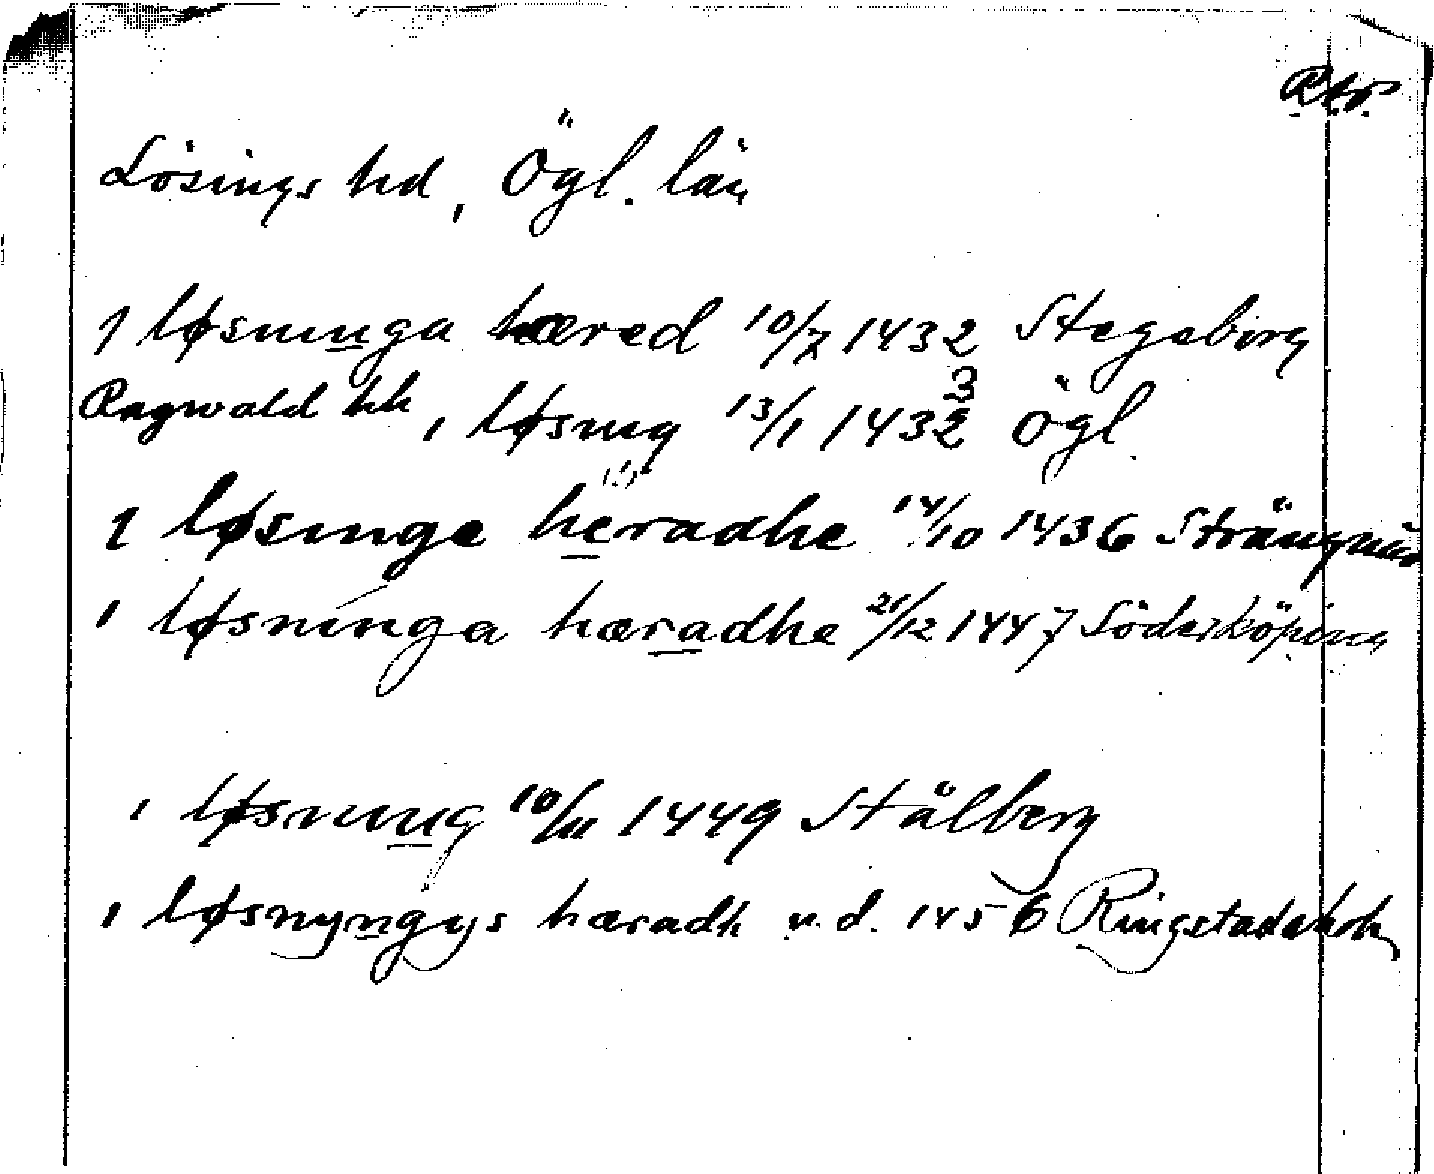 Lösings hd, Ögl. län
J løsninga hæred 10/7 1432 Stegeborg
Ragwald hh i løsing 13/1 1433 Ögl.
J løsinge heradhe 14/10 1436 Strängnäs
i løsninga hæradhe 21/12 1447 Söderköping
i løsnung 10/11 1449 Stålberg
i løsnyngys hæradh u.d. 1456 Ringstadaholm